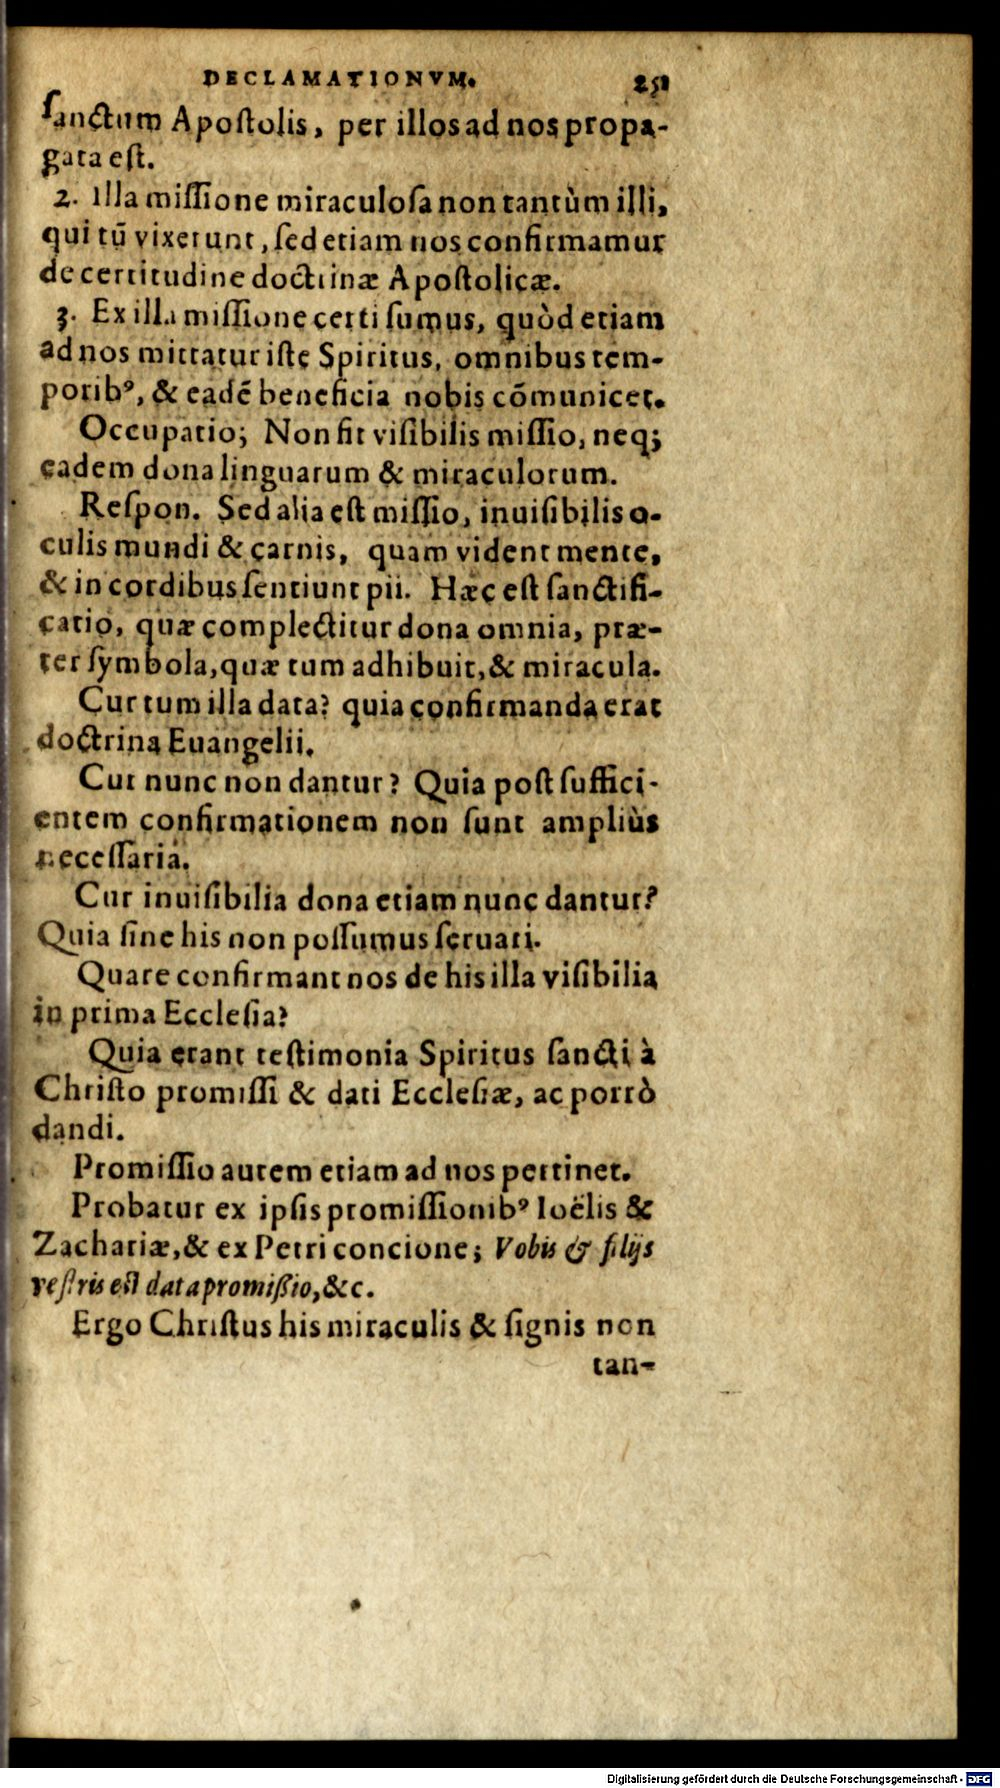 DECLAMATIONVM. 251
ſanctum Apoſtolis, per illos ad nos propa-
gata eſt.
2. Illa miſſione miraculoſa non tantùm illi,
qui tū vixerunt, ſed etiam nos confirmamur
de certitudine doctrinæ Apoſtolicæ.
3. Ex illa miſſione certi ſumus, quòd etiam
ad nos mittatur iſte Spiritus, omnibus tem-
poribꝰ, & eadē beneficia nobis cōmunicet.
Occupatio; Non fit viſibilis miſſio, neq;
eadem dona linguarum & miraculorum.
Reſpon. Sed alia eſt miſſio, inuiſibilis o-
culis mundi & carnis, quam vident mente,
& in cordibus ſentiunt pii. Hæc eſt ſanctifi-
catio, quæ complectitur dona omnia, præ-
ter ſymbola, quæ tum adhibuit, & miracula.
Cur tum illa data? quia confirmanda erat
doctrina Euangelii.
Cur nunc non dantur? Quia poſt ſuffici-
entem confirmationem non ſunt ampliùs
neceſſaria.
Cur inuiſibilia dona etiam nunc dantur?
Quia ſine his non poſſumus ſeruari.
Quare confirmant nos de his illa viſibilia
in prima Eccleſia?
Quia erant teſtimonia Spiritus ſancti à
Chriſto promiſſi & dati Eccleſiæ, ac porrò
dandi.
Promiſſio autem etiam ad nos pertinet.
Probatur ex ipſis promiſſionibꝰ Ioëlis &
Zachariæ, & ex Petri concione; Vobis & filijs
veſtris eſt data promißio, &c.
Ergo Chriſtus his miraculis & ſignis non
tan-
Digitalisierung gefördert durch die Deutsche Forschungsgemeinschaft - DFG